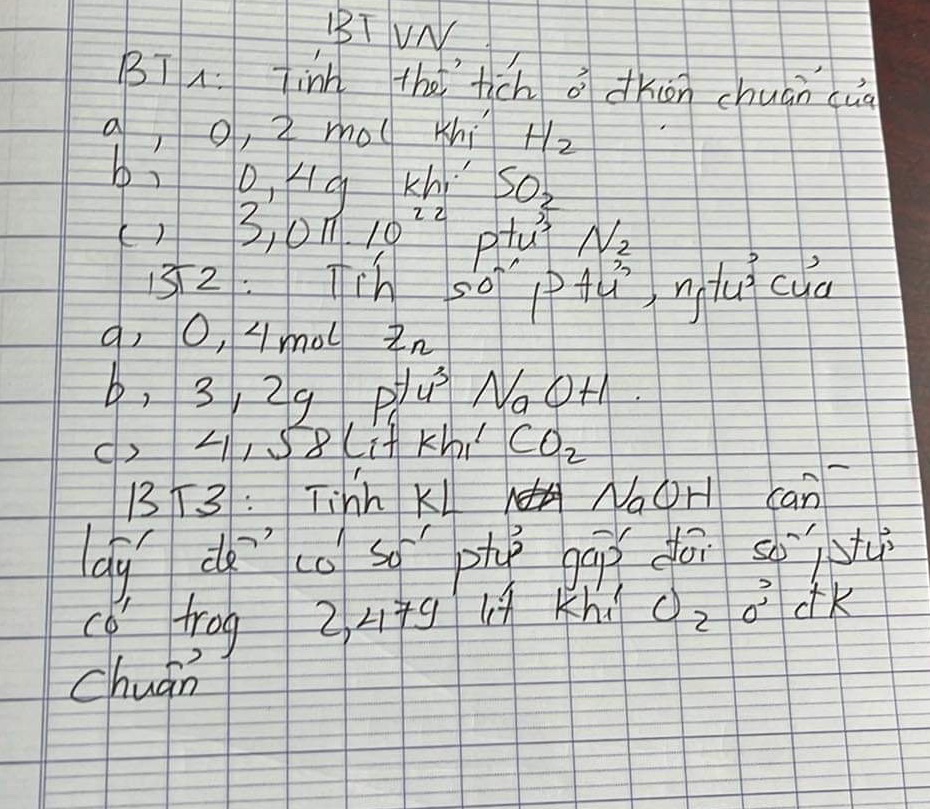 BTVN
BT1: Tính thể tích ở đkiện chuẩn của
a, 0,2 mol khí H₂
b, 0,4g khí SO₂
c, 3,011.10²² ptử N₂
BT2: Tíh số ptử, ngtử của
a, 0,4mol Zn
b, 3,2g ptử NaOH.
c, 4,58 lít khí CO₂
BT3: Tính KL NaOH cần
lấy để có số ptử gấp đôi số ptử
có trog 2,479 lít khí O₂ ở đk
chuẩn